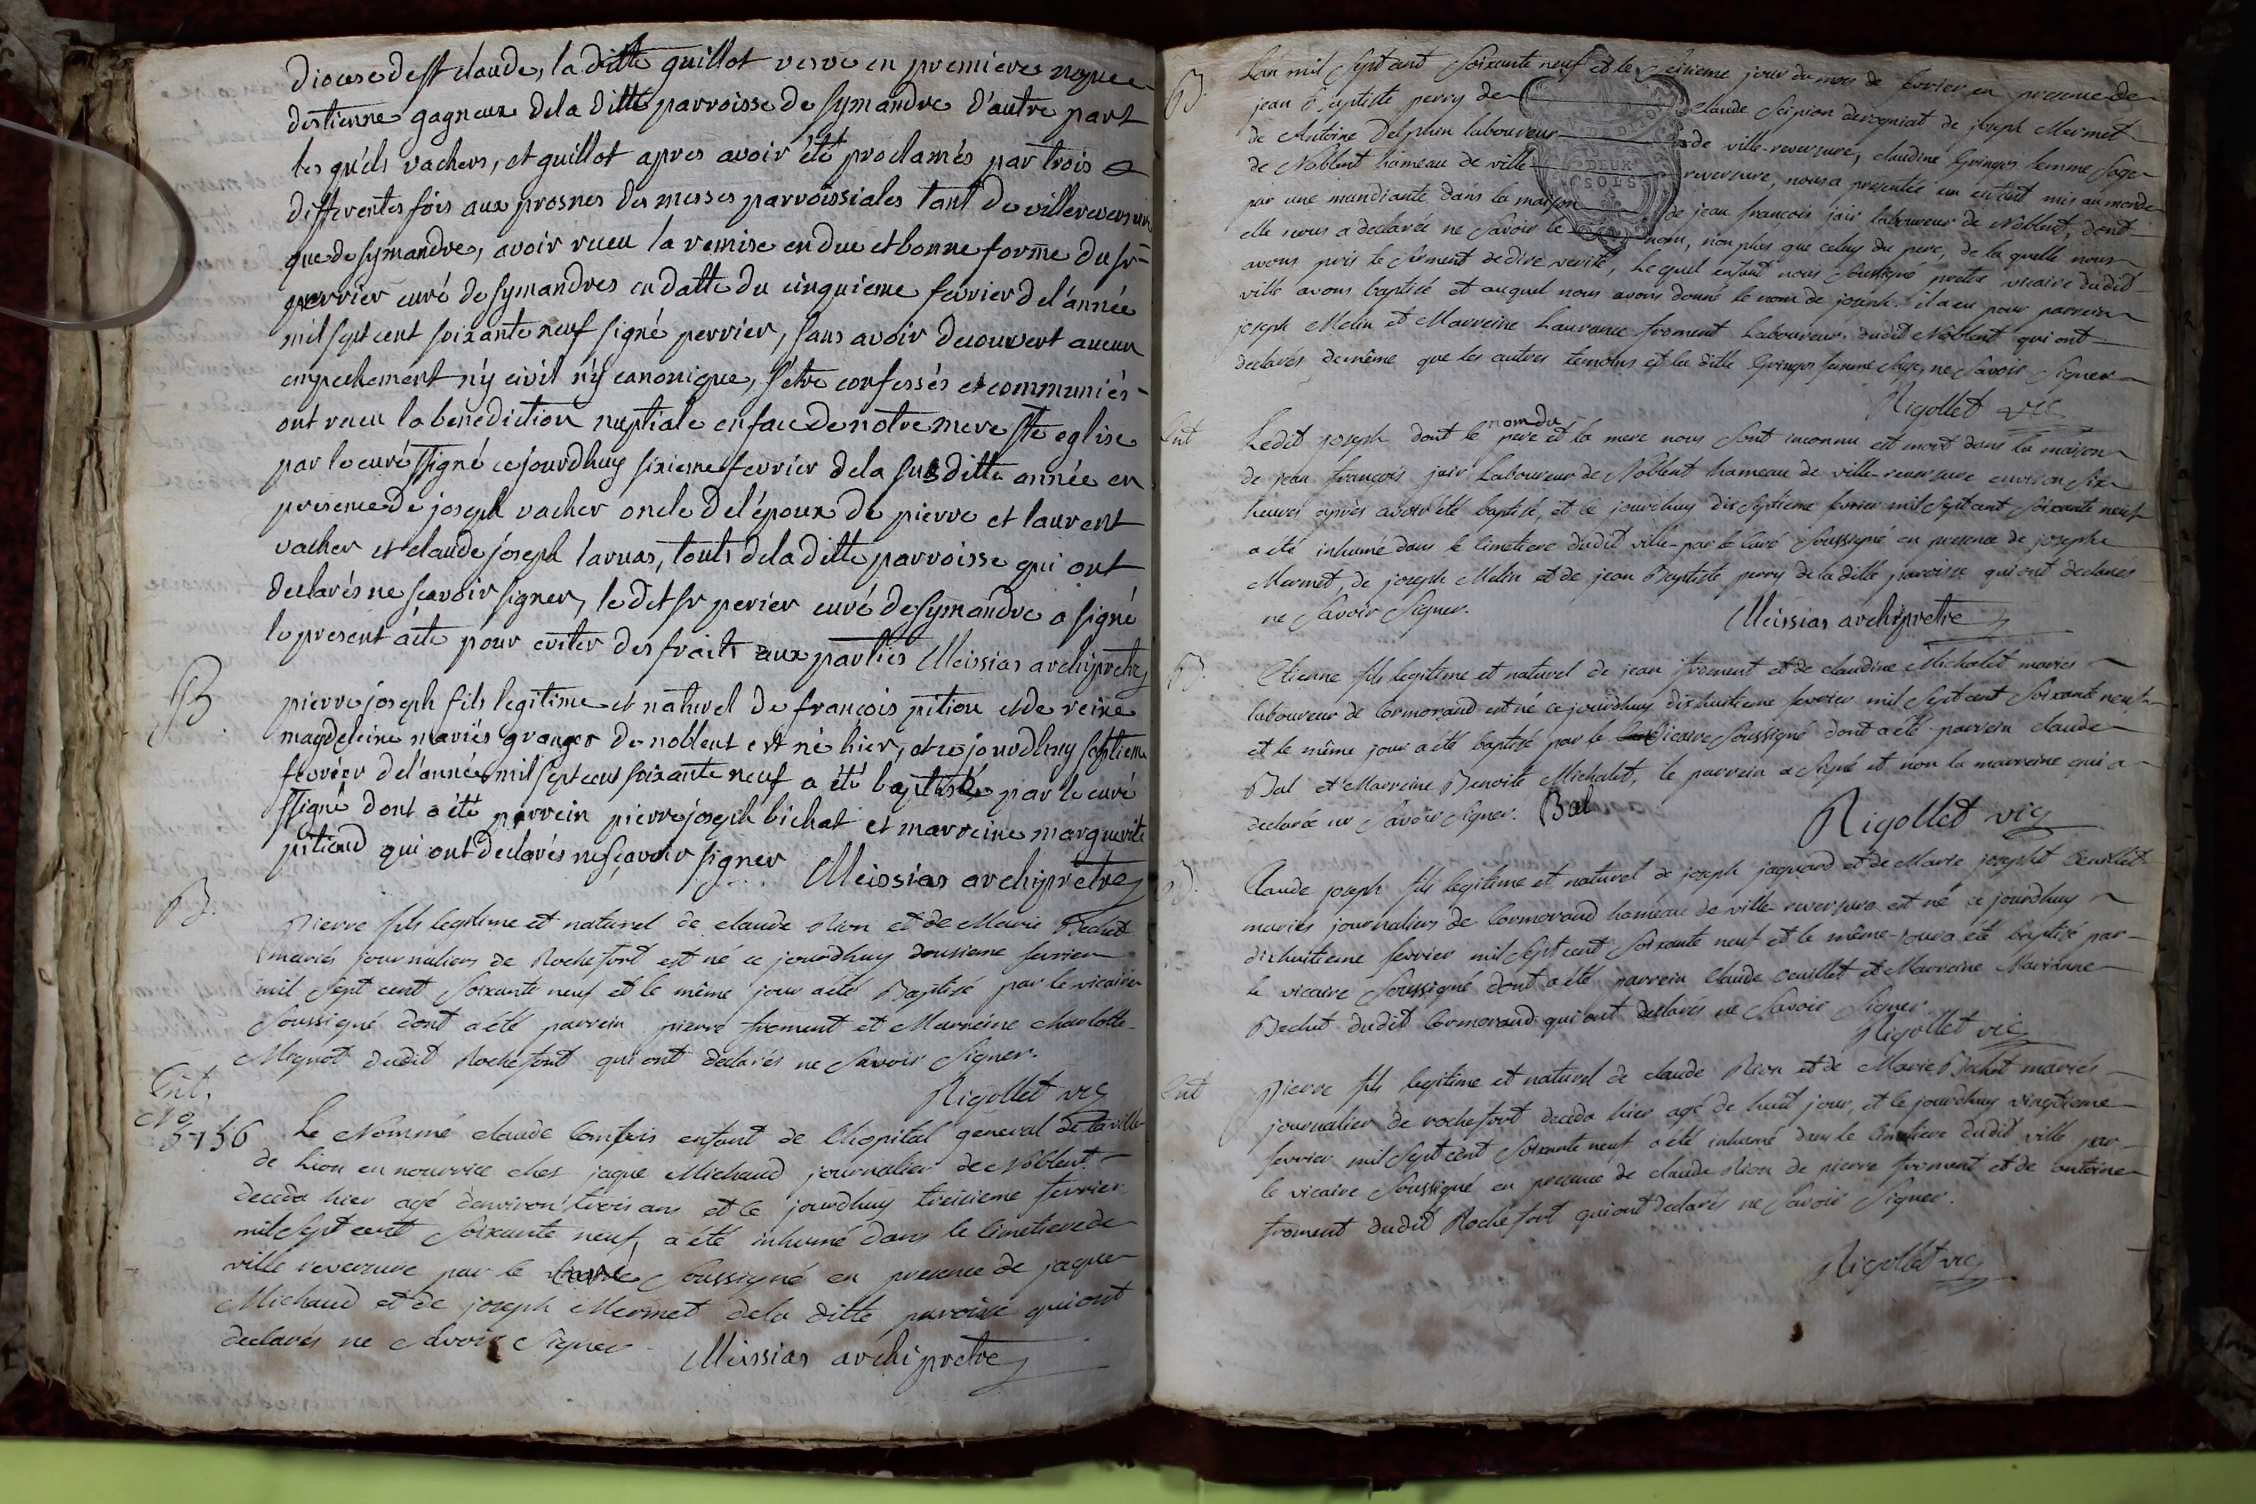 diocese de st claude, la ditte guillot vesve en premieres nopces
destienne gagneur dela ditte parroisse de symandre d'autre part
les quels vachers, et guillot apres avoir été proclamés par trois
differentes fois aux prosnes des messes parroissiales tant de villereversure
que de symandre, avoir recu la remise en due et bonne forme du sr
perrier curé de symandres en datte du cinquieme fevrier de l'année
mil sept cent soixante neuf signé perrier, sans avoir decouvert aucun
empechement n'y civil n'y canonique, s'etre confessés et communiés
ont recu la benediction nuptiale en face de notre mere ste eglise
par le curé ssigné ce jourdhuy sixieme fevrier de la susditte année en
presence de joseph vacher oncle de l'époux de pierre et laurent
vacher et claude joseph laruas, touts dela ditte parroisse qui ont
declarés ne scavoir signer, le dit sr perier curé de symandre a signé
le present acte pour eviter des fraits aux parties Meissias archipretre
B
pierre joseph fils legitime et naturel de françois pitiou et de reine
magdeleine mariés granger de noblent est né hier, et ce jourdhuy septieme
fevrier de l'année mil sept cent soixante neuf a été baptisé par le curé
ssigné dont a été parrein pierre joseph bichat et marreine marguerite
pitioud qui ont declarés ne sçavoir signer Meissias archipretre
B.
Pierre fils legitime et naturel de claude Rion et de Marie Bechet
mariés journaliers de Rochefort est né ce jourdhuy dousieme fevrier
mil sept cent soixante neuf et le même jour a été Baptisé par le vicaire
soussigné dont a été parrein pierre froment et Marreine charlotte
Mignot dudit Rochefort qui ont declarés ne savoir signer.
Rigollet vic
Ent.
No
5756 Le Nommé claude Comfois enfant de l'hopital general de la ville
de Lion en nourrice ches jaque Michaud journalier de Noblent
deceda hier agé d'environ trois ans et ce jourdhuy treisieme fevrier
mil sept cent soixante neuf, a été inhumé dans le cimetiere de
ville reversure par le curé soussigné en presence de jaque
Michaud et de joseph Mermet dela ditte paroisse qui ont
declarés ne savoir signer Meissias archipretre
B.
L'an mil sept cent soixante neuf et le seisieme jour du mois de fevrier en presence de
jean Baptiste perry de claude scipion derogniat de joseph Mermet
de Antoine Delphin laboureurs de ville-reversure, claudine Gringos femme sage
de Noblent hameau de ville reversure, nous a presentée un enfant mis au monde
par une mandiante dans la maison de jean françois jair laboureur de Noblent, dont
elle nous a declarée ne savoir le nom, non plus que celuy du pere, de la quelle nous
avons pris le serment de dire verité, Lequel enfant nous soussigné pretre vicaire dudit
ville avons baptisé et auquel nous avons donné le nom de joseph. il a eu pour parrein
joseph Melin et Marreine Laurance froment Laboureur dudit Noblent qui ont
declarés de même que les autres temoins et la ditte Gringos femme sage, ne savoir signer
Rigollet vic
Ent
Ledit joseph dont le nom du pere et la mere nous sont inconnu est mort dans la maison
de jean françois jair Laboureur de Noblent hameau de ville-reversure environ six
heures après avoir été baptisé, et ce jourdhuy dix septieme fevrier mil sept cent soixante neuf
a eté inhumé dans le cimetiere dudit ville par le Curé soussigné en presence de joseph
Mermet de joseph Melin et de jean Baptiste perry dela ditte paroisse qui ont declarés
ne savoir signer. Meissias archipretre
B.
Etienne fils legitime et naturel de jean froment et de claudine Michalet mariés
laboureur de Cormorand est né ce jourdhuy dixhuitieme fevrier mil sept cent soixante neuf
et le même jour a été baptisé par le vicaire soussigné dont a été parrein claude
Bal et Marreine Benoite Michalet, le parrein a signé et non la marreine qui a
declarée ne savoir signer. Bal Rigollet vic
B.
Claude joseph fils legitime et naturel de joseph jaquand et de Marie josepht Oeuillet
mariés journaliers de Cormorand hameau de ville-reversure est né ce jourdhuy
dixhuitieme fevrier mil sept cent soixante neuf et le même jour a été baptisé par
le vicaire soussigné dont a été parrein claude Oeuillet et Marreine Marianne
Bechet dudit Cormorand qui ont declarés ne savoir signer
Rigollet vic
Ent
Pierre fils legitime et naturel de claude Rion et de Marie Bechet mariés
journalier de rochefort deceda hier agé de huit jour, et le jourdhuy vingtieme
fevrier mil sept cent soixante neuf a été inhumé dans le cimetiere dudit ville par
le vicaire soussigné en presence de claude Rion de pierre froment et de antoine
froment dudit Rochefort qui ont declarés ne savoir signer.
Rigollet vic
DEUX
SOLS